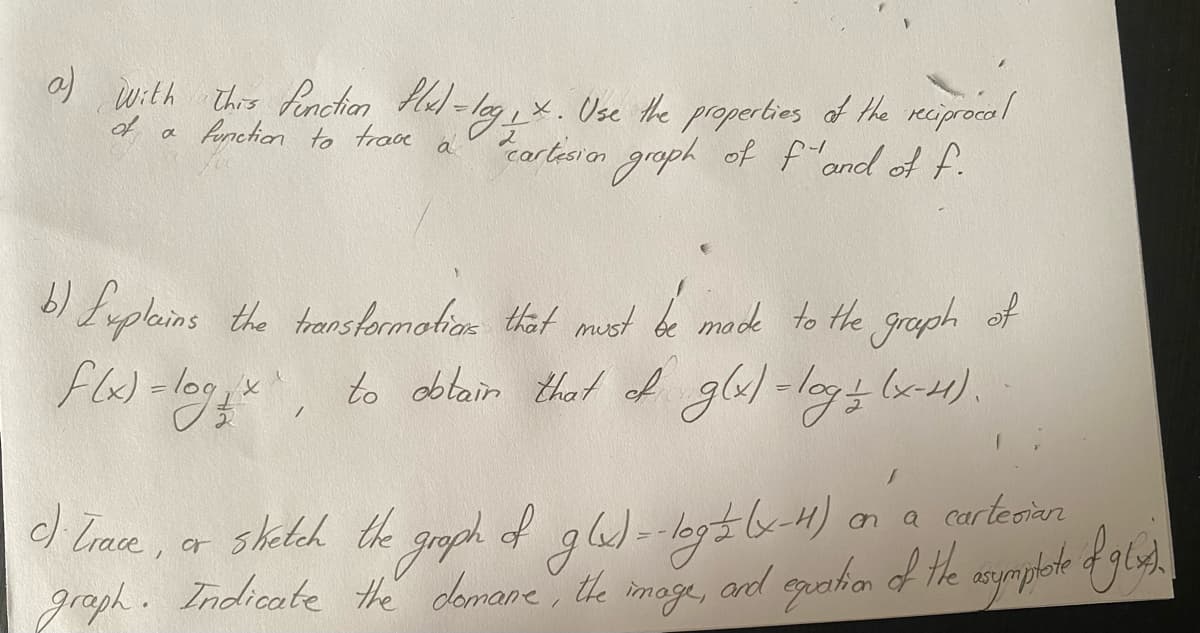 a) With this function f(x)=log_{1/2} x. Use the properties of the reciprocal
of a function to trace a cartesian graph of f^{-1} and of f.
b) Explains the transformations that must be made to the graph of
f(x)=log_{1/2} x, to obtain that of g(x)=log_{1/2} (x-4).
c) Trace, or sketch the graph of g(x)=-log_{1/2} (x-4) on a cartesian
graph. Indicate the domane, the image, and equation of the asymptote of g(x).